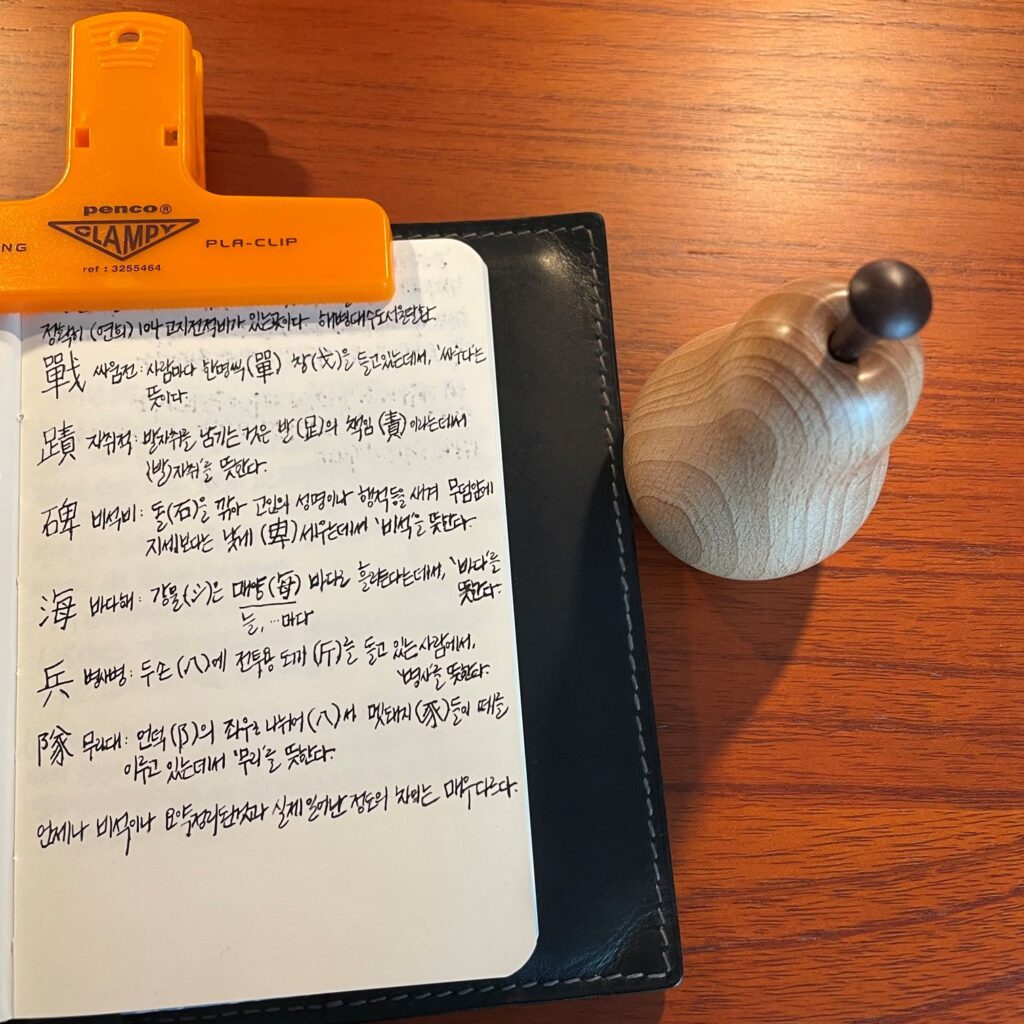 penco®
CLAMPY
NG
PLA-CLIP
ref : 3255464
(연희) 104 고지전적비가 있는곳이다. 해병대수도서울탈환.
戰 싸움전: 사람마다 한명씩(單) 창(戈)을 들고있는데서, '싸우다'는
뜻이다.
蹟 자취적: 발자취를 남기는 것은 발(足)의 책임(責)이라는데서
'(발)자취'를 뜻한다.
碑 비석비: 돌(石)을 깎아 고인의 성명이나 행적등을 새겨 무덤앞에
지세보다는 낮게(卑) 세우는데서 '비석'을 뜻한다.
海 바다해: 강물(氵)은 매양(每) 바다로 흘러든다는데서, '바다'를
늘, …마다 뜻한다.
兵 병사병: 두손(八)에 전투용 도끼(斤)를 들고 있는 사람에서,
'병사'를 뜻한다.
隊 무리대: 언덕(阝)의 좌우로 나뉘어(八)서 멧돼지(豕)들이 떼를
이루고 있는데서 '무리'를 뜻한다.
언제나 비석이나 요약정리된것과 실제 일어난 정도의 차이는 매우다르다.